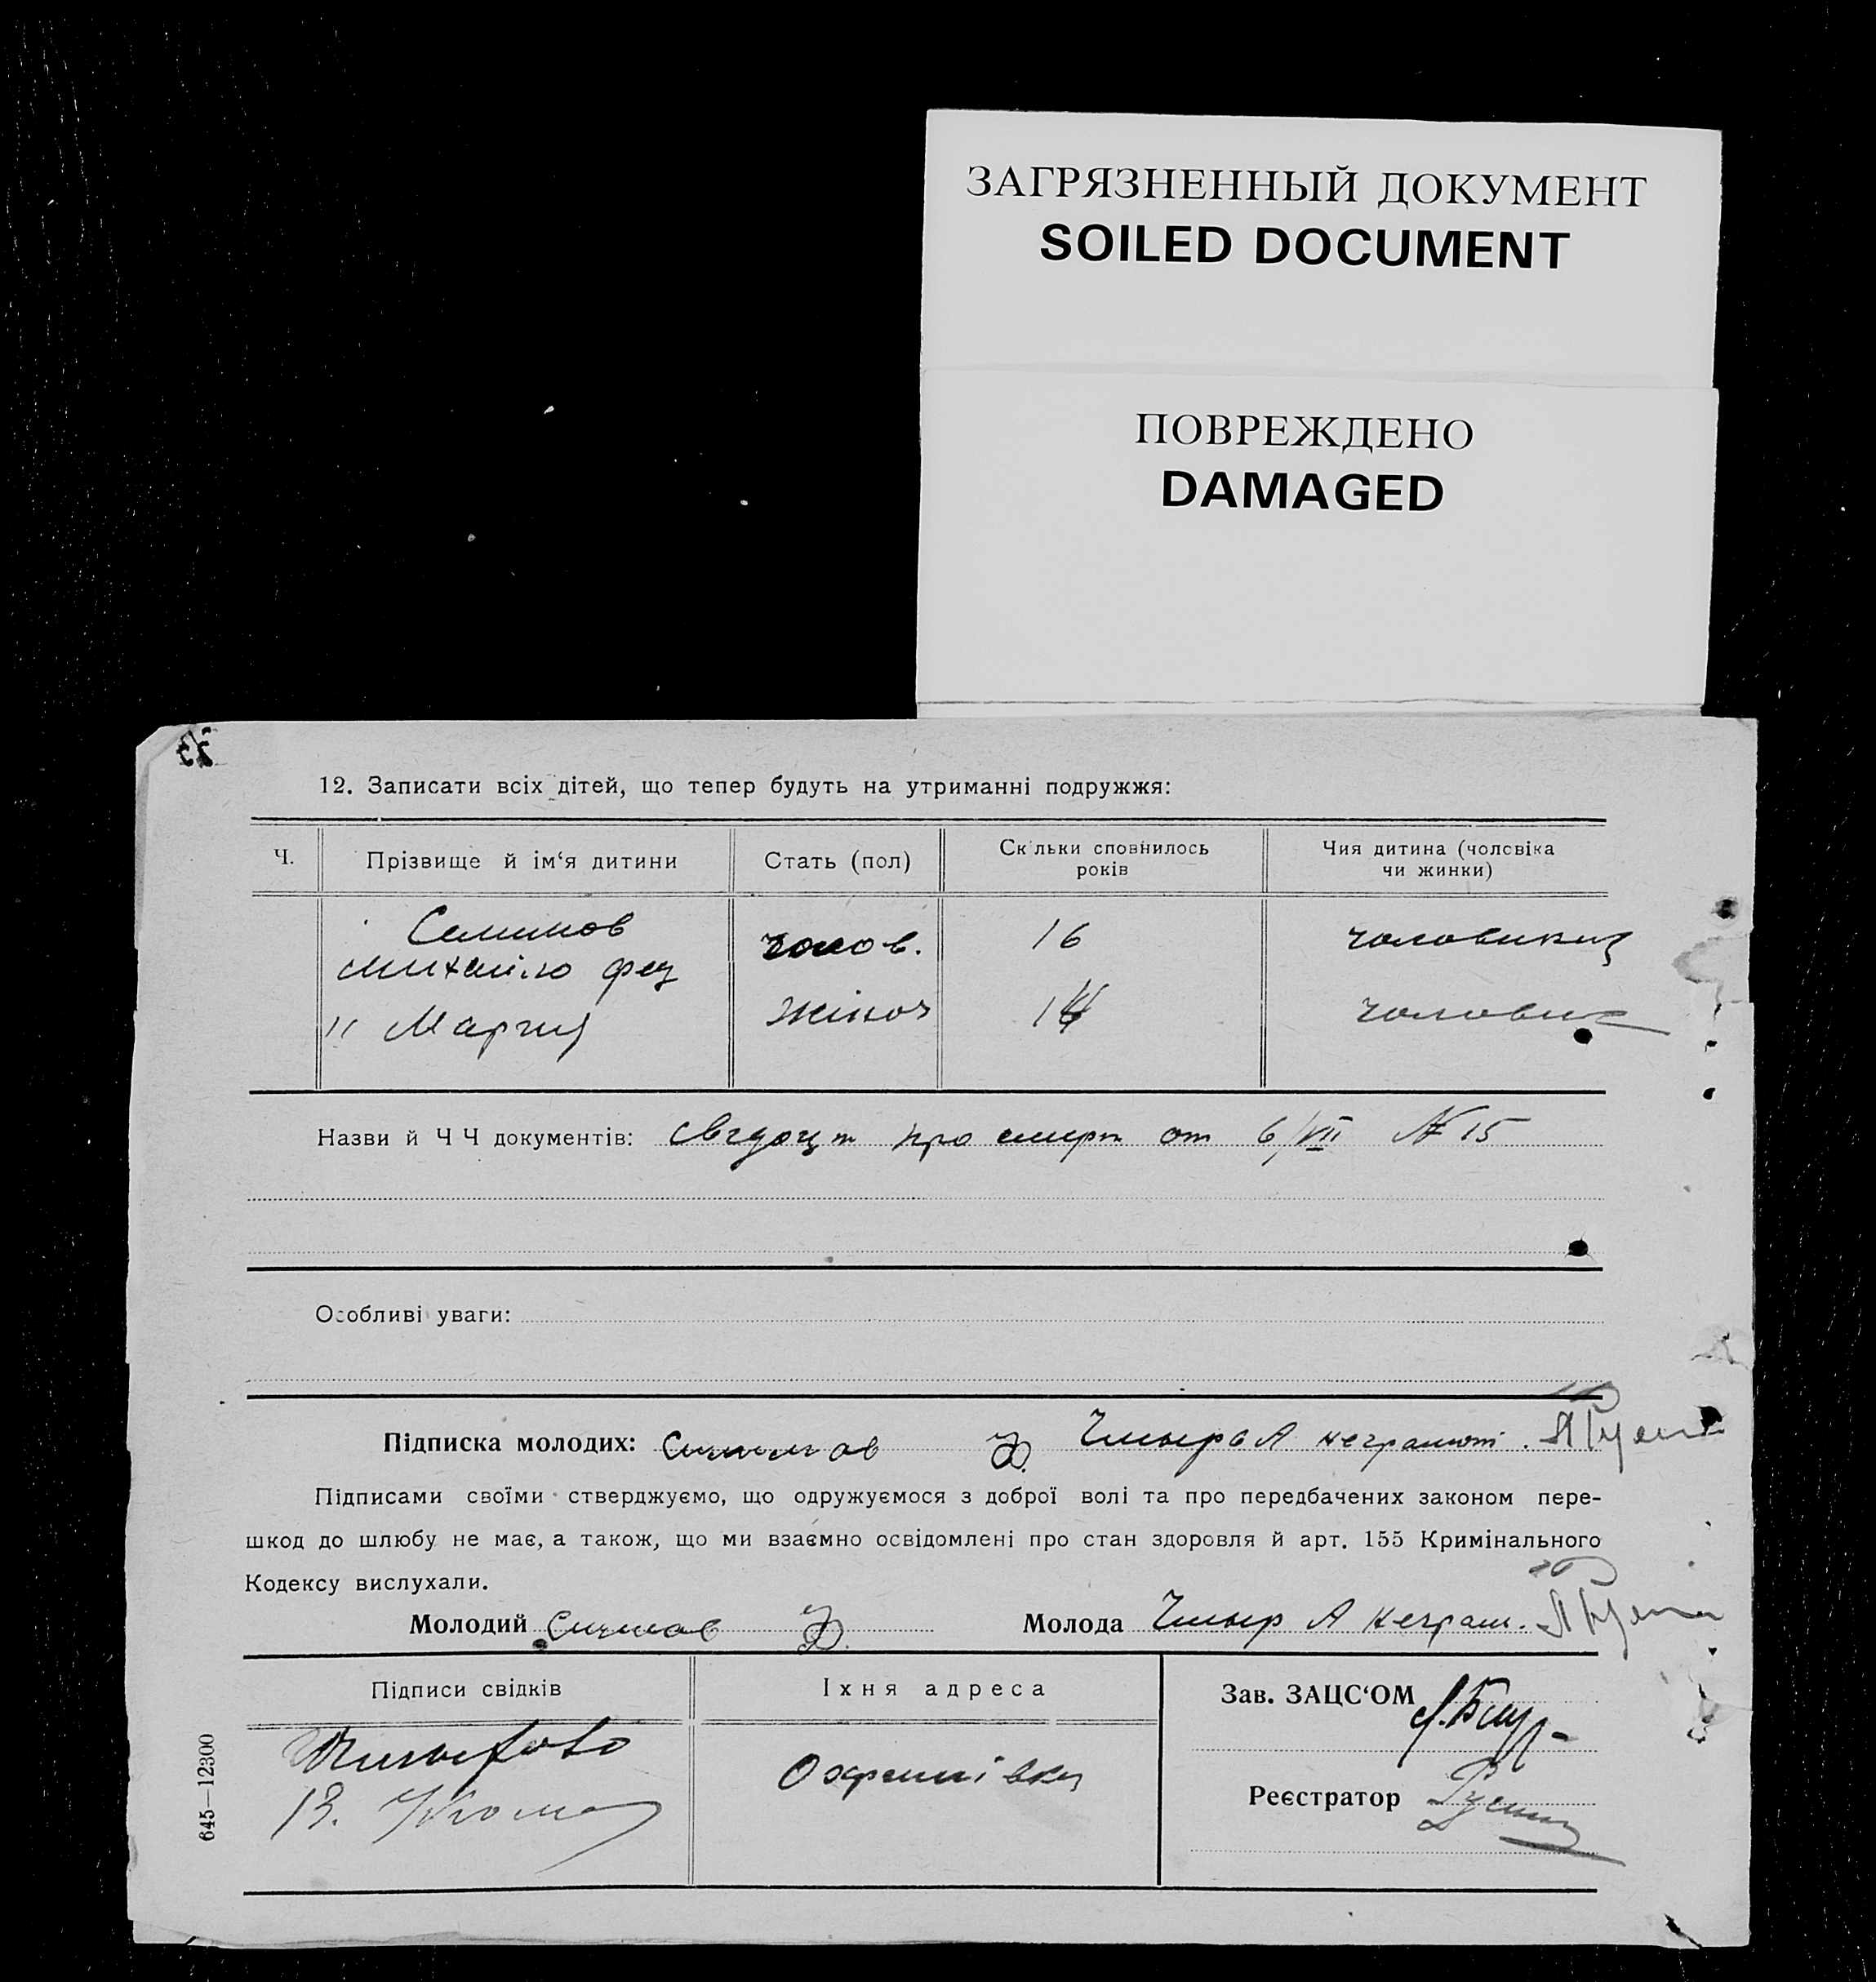 ЗАГРЯЗНЕННЫЙ ДОКУМЕНТ
SOILED DOCUMENT
ПОВРЕЖДЕНО
DAMAGED
12. Записати всіх дітей, що тепер будуть на утриманні подружжя:
Ч. Прізвище й ім‘я дитини Стать (пол) Скільки сповнилось років Чия дитина (чоловіка чи жинки)
чолов. 16
" Мария жіноч
Назви й Ч Ч документів: про смерт от 6/VII № 15
Особливі уваги:
Підписка молодих: Чмырь А неграмот.
Підписами своїми стверджуємо, що одружуємося з доброї волі та про передбачених законом пере-
шкод до шлюбу не має, а також, що ми взаємно освідомлені про стан здоровля й арт. 155 Кримінального
Кодексу вислухали.
Молодий Молода Чмыр А неграм.
Підписи свідків Іхня адреса Зав. ЗАЦС‘ОМ
Реєстратор
645—12300